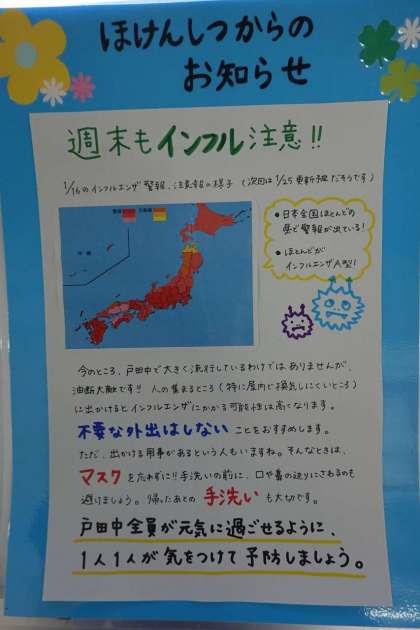 ほけんしつからの
お知らせ
週末もインフル注意!!
1/16のインフルエンザ警報、注意報の様子 (次回は1/25更新予定だそうです)
● 日本全国ほとんどの
県で警報が出ている!
● ほとんどが
インフルエンザA型!
今のところ、戸田中で大きく流行しているわけではありませんが、
油断大敵です!! 人の集まるところ (特に屋内で換気しにくいところ)
に出かけるとインフルエンザにかかる可能性は高くなります。
不要な外出はしない ことをおすすめします。
ただ、出かける用事があるという人もいますね。そんなときは、
マスク を忘れずに!! 手洗いの前に、口や鼻の辺りにさわるのも
避けましょう。帰ったあとの 手洗い も大切です。
戸田中全員が元気に過ごせるように、
1人1人が気をつけて予防しましょう。